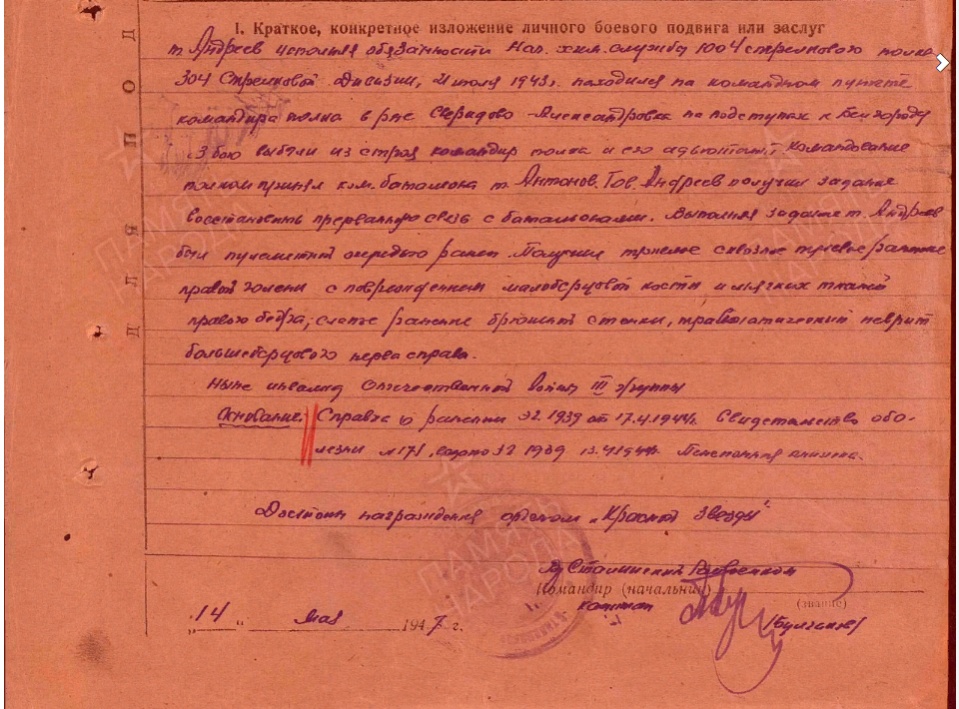 I. Краткое, конкретное изложение личного боевого подвига или заслуг
т. Андреев исполняя обязанности Нач. хим. службы 1004 стрелкового полка
304 Стрелковой Дивизии, июля 1943 г. находился на командном пункте
командира полка в р-не Александровка на подступах к Белгороду
В бою выбыли из строя командир полка и его адъютант. Командование
полком принял ком. батальона т. Антонов. Тов. Андреев получил задание
восстановить прерванную связь с батальонами. Выполняя задание т. Андреев
был пулеметной очередью ранен. Получил тяжелое сквозное пулевое ранение
правой голени с повреждением малоберцовой кости и мягких тканей
правого бедра; слепое ранение брюшной стенки, травматический неврит
большеберцового нерва справа.
Ныне инвалид Отечественной войны III группы
Основание: Справка о ранении ЭГ 1939 от 17.4.1944г. Свидетельство о бо-
лезни №171, ЭГ 1939 Пенсионная книжка.
Достоин награждения орденом „Красной Звезды"
Сталинский Райвоенком
Командир (начальник)
капитан
(звание)
„14" мая 1947 г.
ДЛЯ ПОД
ПАМЯТЬ НАРОДА
ПАМЯТЬ НАРОДА
ПАМЯТЬ НАРОДА